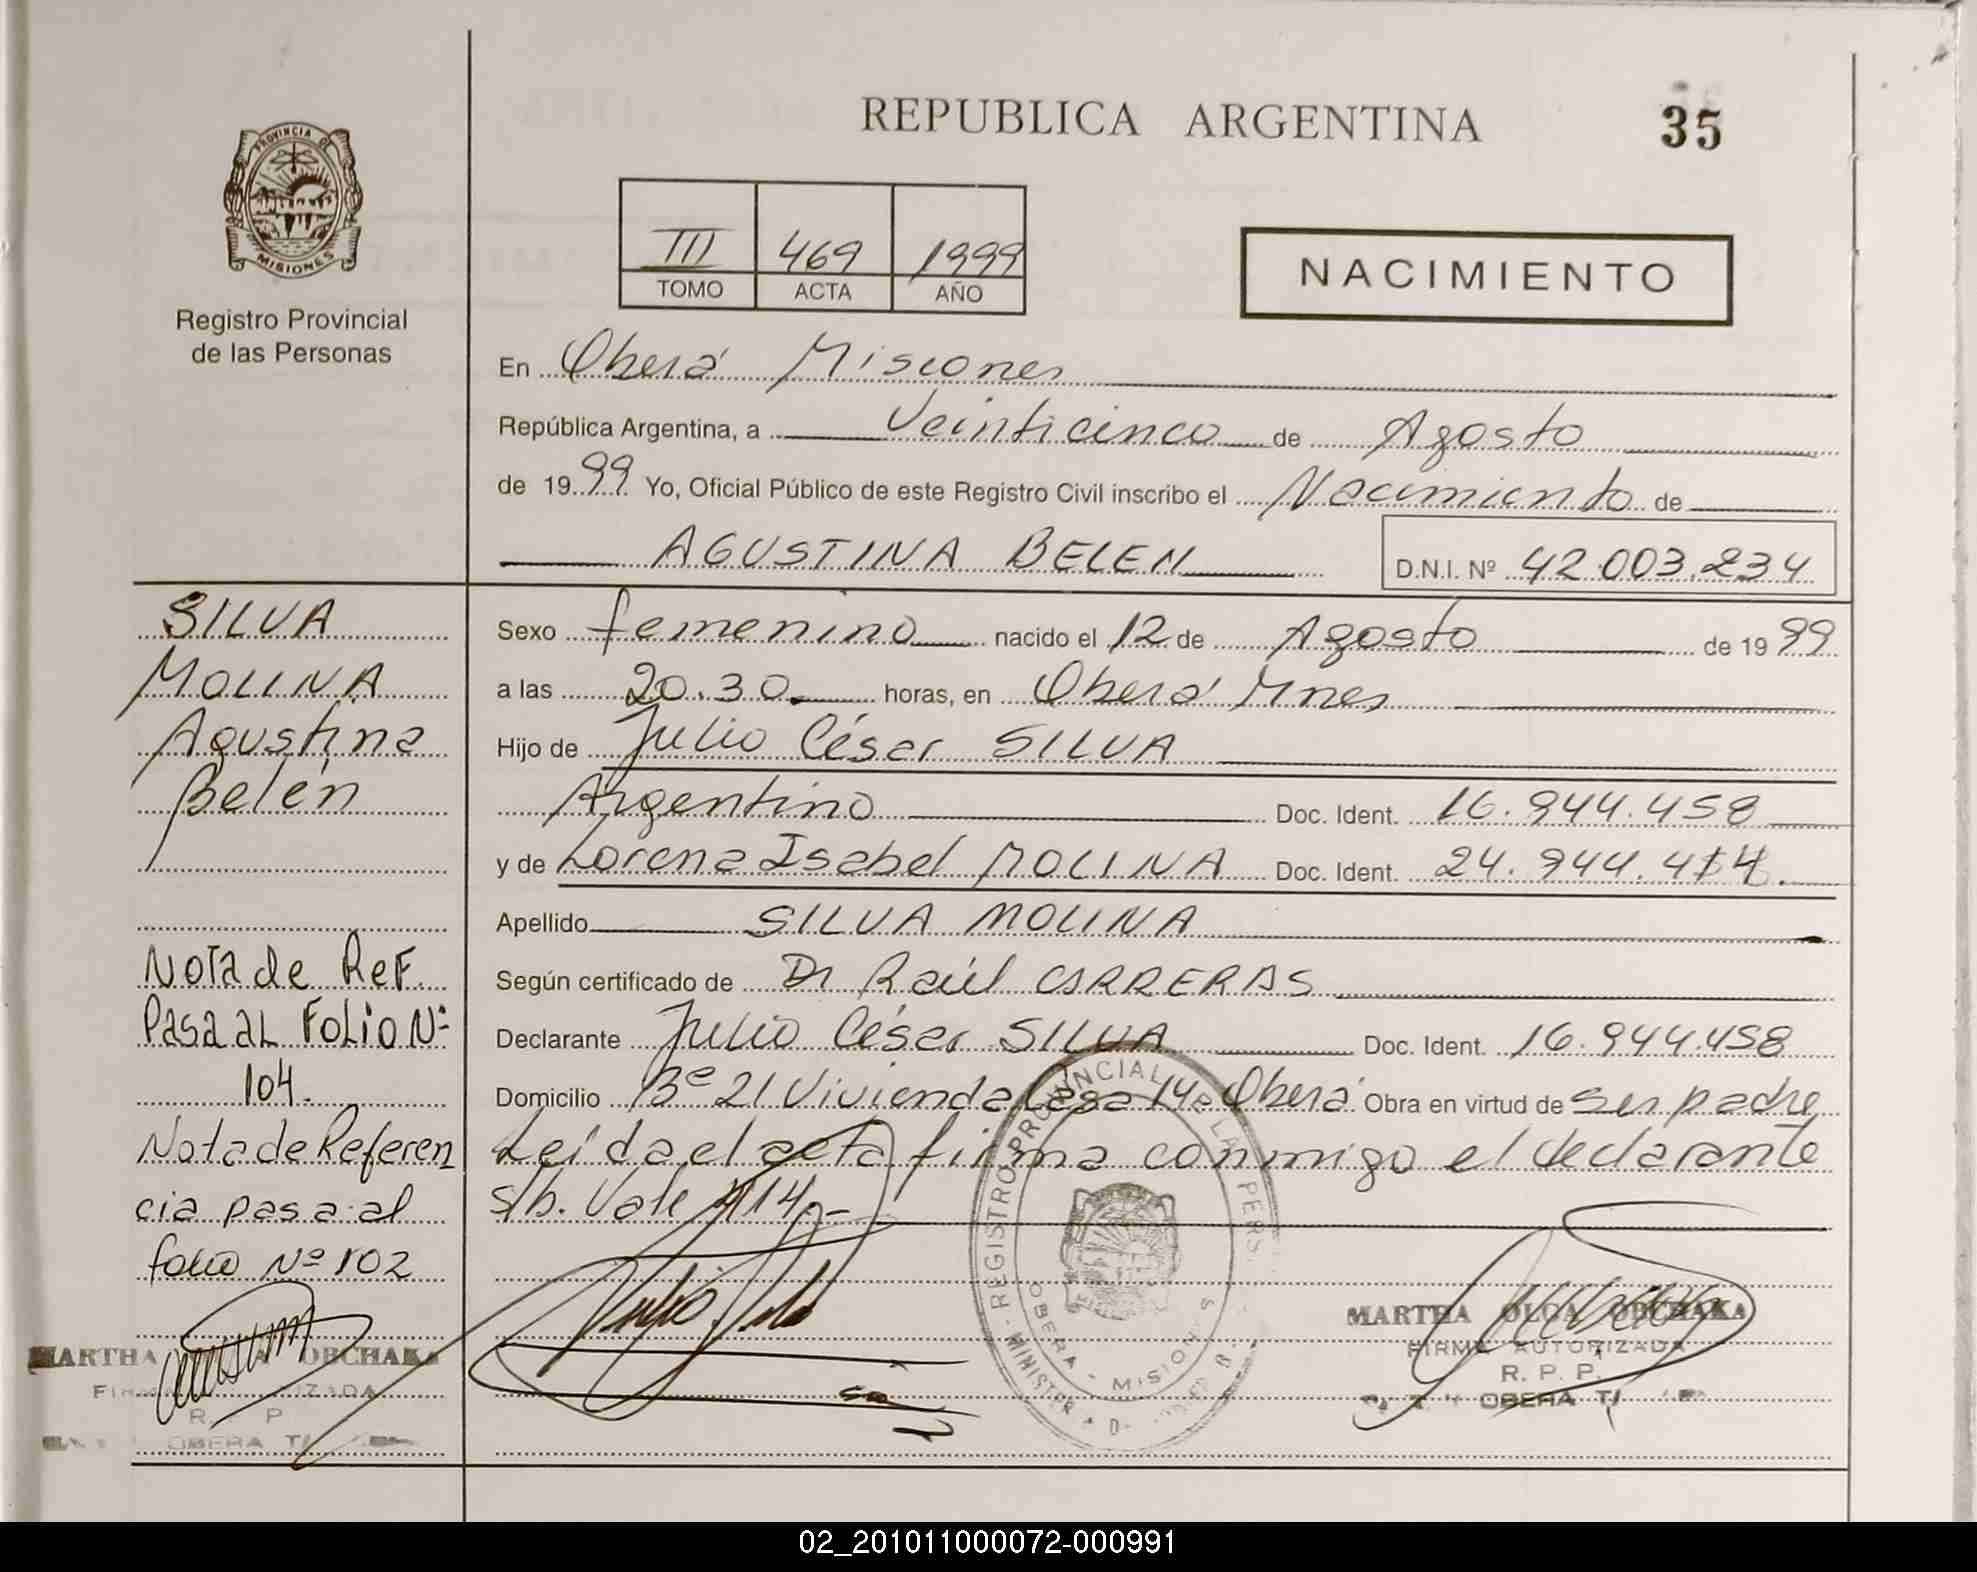 REPUBLICA ARGENTINA
35
PROVINCIA DE
MISIONES
Registro Provincial
de las Personas
III 469 1999
TOMO ACTA AÑO
NACIMIENTO
En Oberá Misiones
República Argentina, a Veinticinco de Agosto
de 1999 Yo, Oficial Público de este Registro Civil inscribo el Nacimiento de
AGUSTINA BELEN D.N.I. Nº 42.003.234
SILVA
MOLINA
Agustina
Belén
Sexo femenino nacido el 12 de Agosto de 1999
a las 20.30 horas, en Oberá Mnes
Hijo de Julio César SILVA
Argentino Doc. Ident. 16.944.458
y de Lorena Isabel MOLINA Doc. Ident. 24.944.414.
Apellido SILVA MOLINA
Según certificado de Dr Raúl CARRERAS
Declarante Julio César SILVA Doc. Ident. 16.944.458
Domicilio Bº 21 Vivienda Casa 14 Oberá Obra en virtud de ser padre
Leída el acta firma conmigo el declarante
s/b. Vale 414.-
Nota de Ref.
Pasa al Folio Nº
104.
Nota de Referen
cia pasa al
folio Nº 102
MARTHA OBCHAKA
R. P
OBERA
REGISTRO PROVINCIAL DE LA PERS
OBERA - MISIONES
MARTHA OLGA OBCHAKA
FIRMA AUTORIZADA
R. P. P.
OBERA
02_201011000072-000991